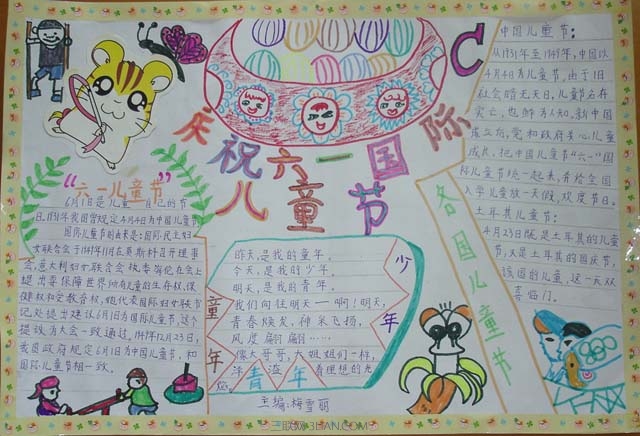 庆祝六一国际
儿童节
“六一儿童节”
6月1日是儿童自己的节
日,1931年我国曾规定4月4日为中国儿童节
国际儿童节的由来是:国际民主妇
女联合会于1949年11月在莫斯科召开理事
会,意大利妇女联合会执委
提出要保障世界所有儿童的生存权、保
健权和受教育权,她代表国际妇女联书
记处提出建议6月1日为国际儿童节,这个
提议为大会一致通过。1949年12月23日,
我国政府规定6月1日为中国儿童节,和
国际儿童节相一致。
童年
少年
青年
昨天,是我的童年。
今天,是我的少年。
明天,是我的青年。
我们向往明天——啊!明天,
青春焕发,神采飞扬,
风度翩翩……
像大哥哥,大姐姐们一样,
洋溢着理想的光
焰。
主编:梅雪丽
各国儿童节
中国儿童节:
从1931年至1949年,中国以
4月4日为儿童节。由于旧
社会暗无天日,儿童节名存
实亡,也鲜为人知。新中国
成立后,党和政府关心儿童
成长,把中国儿童节“六一”国
际儿童节统一起来,并给全国
入学儿童放一天假,欢度节日。
土耳其儿童节:
4月23日既是土耳其的儿童
节,又是土耳其的国庆节,
该国的儿童,这一天双
喜临门。
三联网 3LIAN.COM